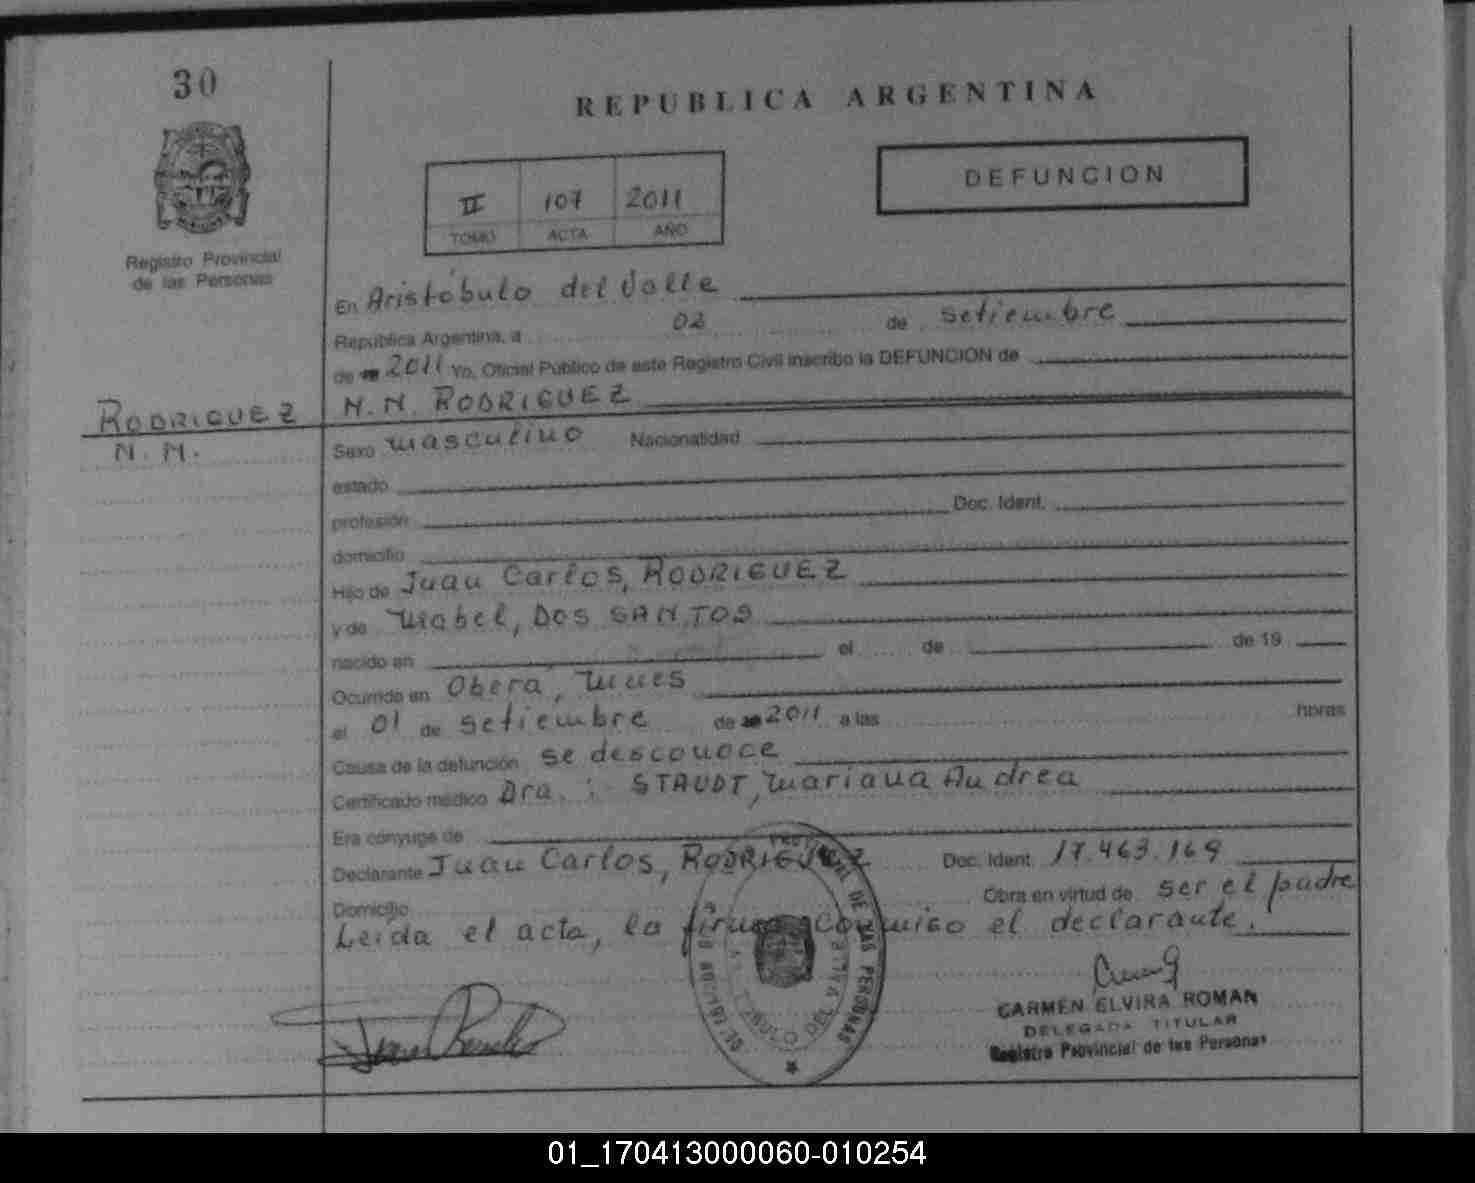 30
REPUBLICA ARGENTINA
DEFUNCION
II 107 2011
TOMO ACTA AÑO
Registro Provincial
de las Personas
En Aristóbulo del Valle
República Argentina, a 02 de setiembre
de 2011 Yo, Oficial Público de este Registro Civil inscribo la DEFUNCION de
RODRIGUEZ
N.N.
N.N. RODRIGUEZ
Sexo masculino Nacionalidad
estado
profesión Doc. Ident.
domicilio
Hijo de Juan Carlos, RODRIGUEZ
y de Mabel, DOS SANTOS
nacido en el de de 19
Ocurrida en Obera, Mnes
el 01 de setiembre de 2011 a las horas
Causa de la defunción se desconoce
Certificado médico Dra.: STAUDT, Mariana Andrea
Era cónyuge de
Declarante Juan Carlos, RODRIGUEZ Doc. Ident. 17.463.169
Domicilio Obra en virtud de ser el padre
Leida el acta, la firma conmigo el declarante.
CARMEN ELVIRA ROMAN
DELEGADA TITULAR
Registro Provincial de las Personas
01_170413000060-010254